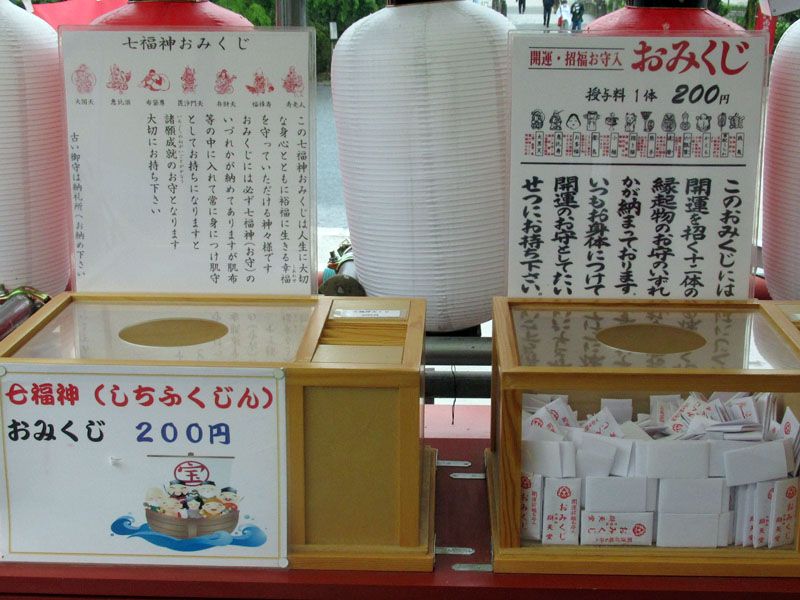 七福神おみくじ
大国天
恵比須
布袋尊
毘沙門天
弁財天
福禄寿
寿老人
この七福神おみくじは人生に大切
な身心とともに裕福に生きる幸福
を守っていただける神々様です
おみくじには必ず七福神(お守)の
いづれかが納めてありますが肌布
等の中に入れて常に身につけ肌守
としてお持ちになりますと
諸願成就のお守となります
大切にお持ち下さい
古い御守は納札所へお納め下さい
開運・招福お守入
おみくじ
授与料 1体 200円
このおみくじには
開運を招く十二体の
縁起物のお守のいずれ
かが納まております。
いつもお身体につけて
開運のお守としてたい
せつにお持ち下さい。
七福神(しちふくじん)
おみくじ 200円
宝
おみくじ